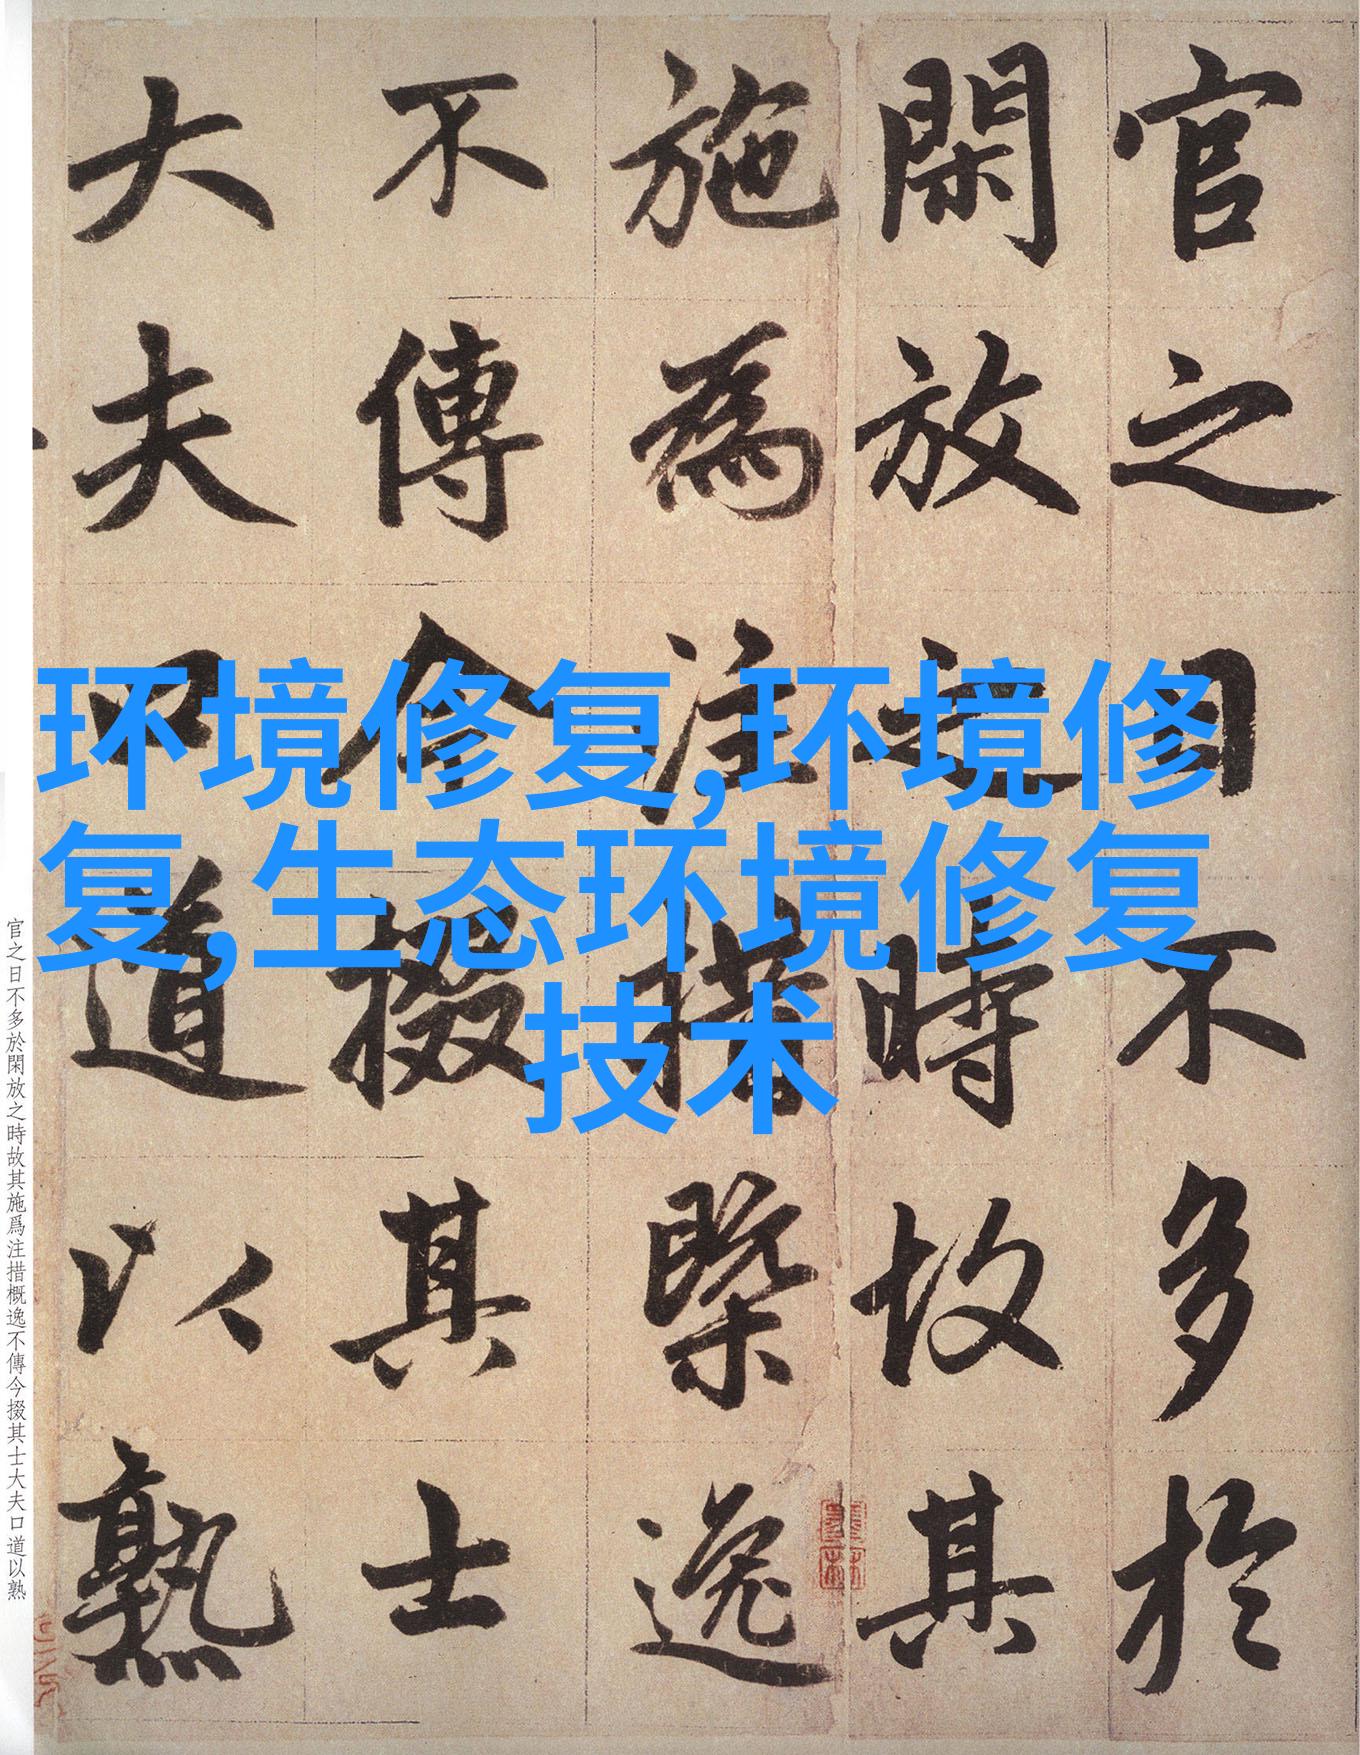 官之日不多於
閑放之時故其
施為注措槩逸
不傳今掇其士
大夫口道以熟
环境修复,环境修
复,生态环境修复
技术
官之日不多於閑放之時故其施爲注措概逸不傳今掇其士大夫口道以熟